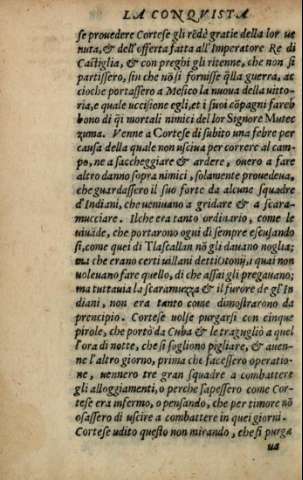 LA CONQVISTA
se prouedere Cortese gli rēdè gratie della lor ue
nuta, & dell'offerta fatta all'Imperatore Re di
Castiglia, & con preghi gli ritenne, che non si
partissero, sin che nō si fornisse q̄lla guerra, ac
cioche portassero a Messico la nuoua della uitto-
ria, e quale uccisione egli, et i suoi cōpagni fareb
bono di q̄i mortali nimici del lor Signore Mutec
zuma. Venne a Cortese di subito una febre per
causa della quale non usciua per correr al cam-
po, ne a saccheggiare & ardere, ouero a fare
altro danno sopra nimici, solamente prouedeua,
che guardassero il suo forte da alcune squadre
d'Indiani, che ueniuano a gridare & a scara-
mucciare. Ilche era tanto ordinario, come le
uiuāde, che portarono ogni dì sempre escusando
si, come quei di Tlascallan nō gli dauano noglia;
ma che erano certi uillani detti i quai non
uoleuano fare quello, di che assai gli pregauano;
ma tuttauia la scaramuzza & il furore de gl'In
diani, non era tanto come dimostrarono da
prencipio. Cortese uolse purgarsi con cinque
pirole, che portò da Cuba & le tragugliò a quel
l'ora di notte, che si sogliono pigliare, & auen-
ne l'altro giorno, prima che facessero operatio-
ne, uennero tre gran squadre a combattere
gli alloggiamenti, o perche sapessero come Cor-
tese era infermo, o pensando, che per timore nō
osassero di uscire a combattere in quei giorni.
Cortese udito questo non mirando, che si purga
ua